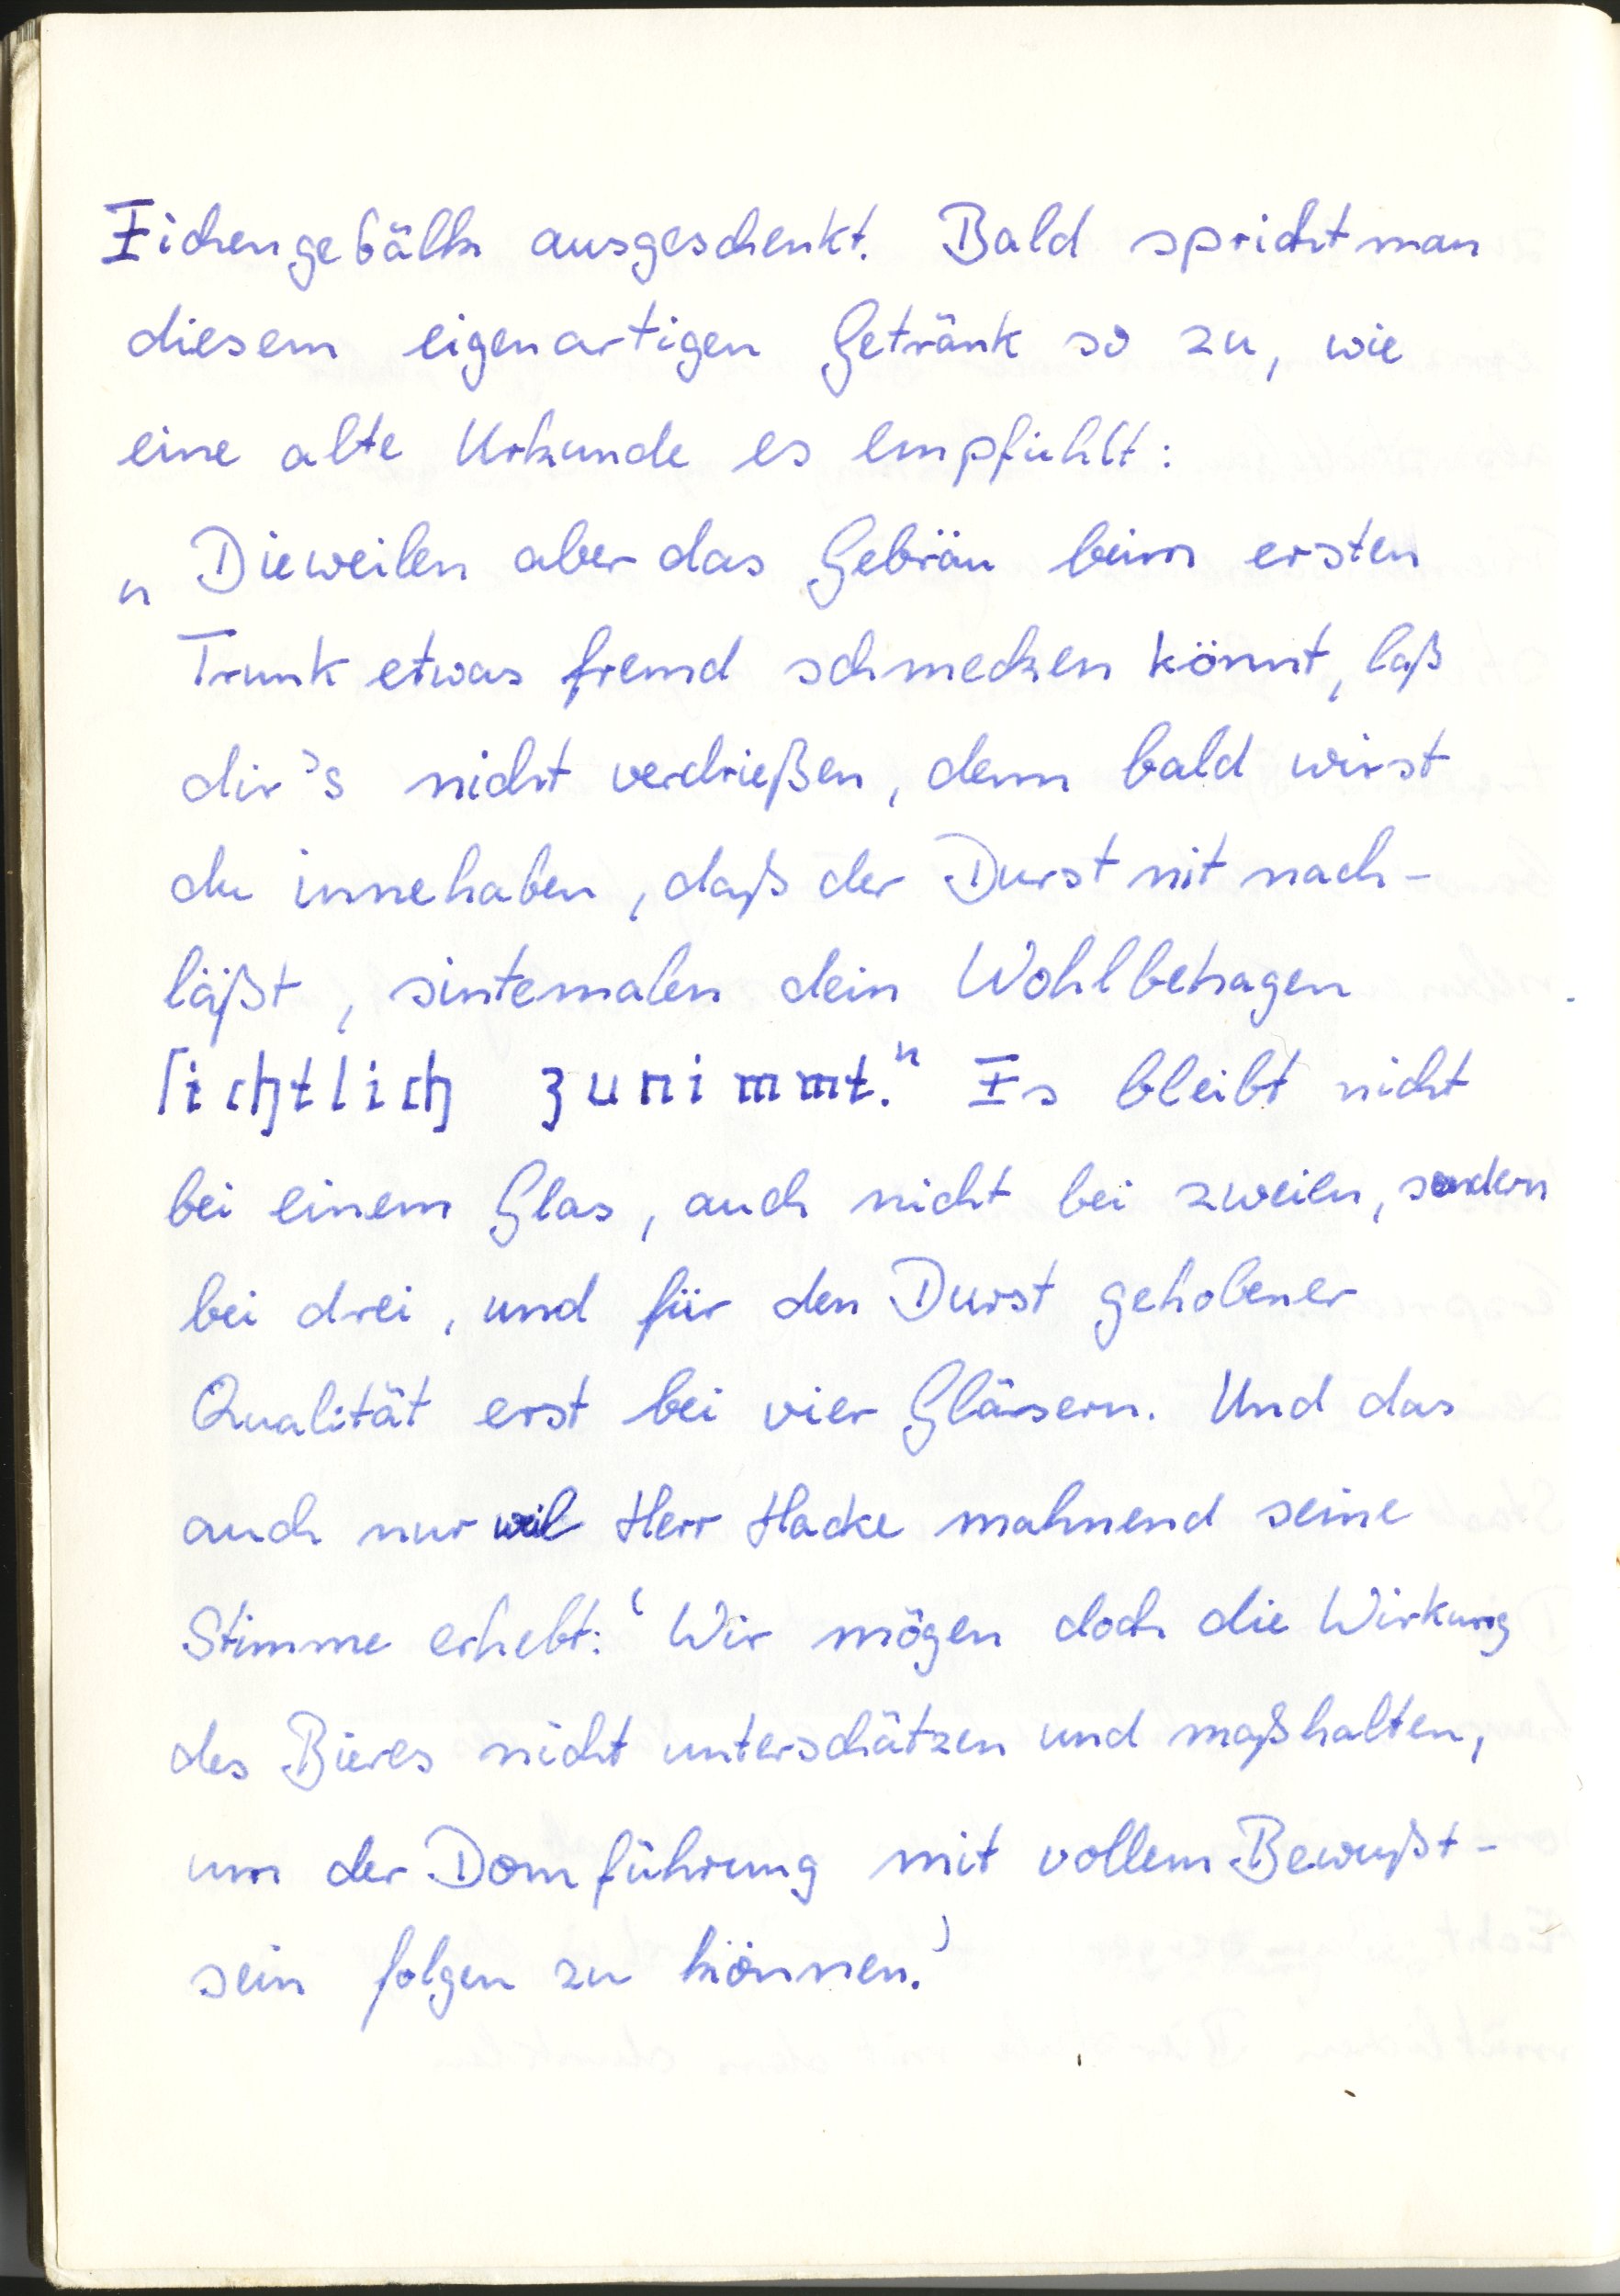 Eichengebälk ausgeschenkt. Bald spricht man
diesem eigenartigen Getränk so zu, wie
eine alte Urkunde es empfiehlt:
„Dieweilen aber das Gebräu beim ersten
Trunk etwas fremd schmecken könnt, laß
dir's nicht verdrießen, denn bald wirst
du innehaben, daß der Durst nit nach-
läßt, sintemalen dein Wohlbehagen
sichtlich zunimmt." Es bleibt nicht
bei einem Glas, auch nicht bei zweien, sondern
bei drei, und für den Durst gehobener
Qualität erst bei vier Gläsern. Und das
auch nur weil Herr Hacke mahnend seine
Stimme erhebt: 'Wir mögen doch die Wirkung
des Bieres nicht unterschätzen und maßhalten,
um der Domführung mit vollem Bewußt-
sein folgen zu können.'